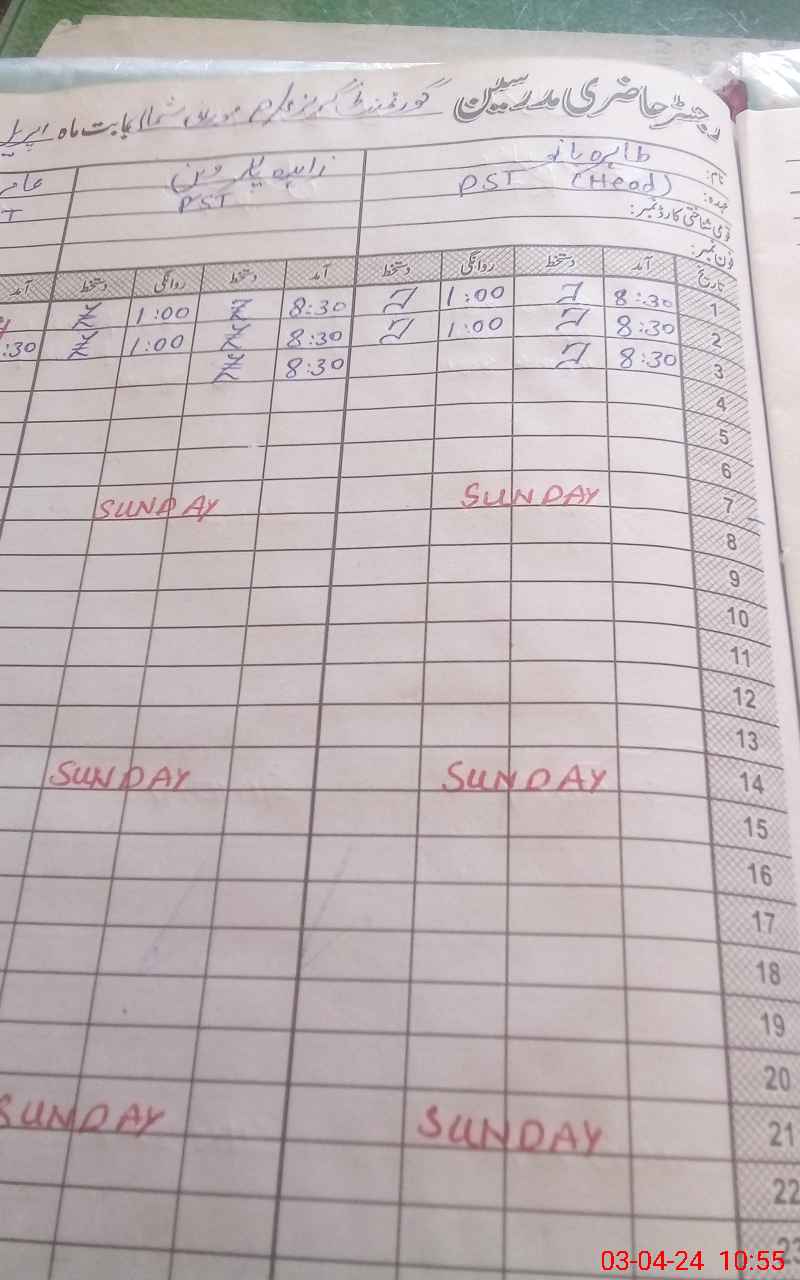 رجسٹر حاضری مدرسین گورنمنٹ گرلز شمالی بابت ماہ اپریل
نام: طاہرہ بانو زاہدہ پروین عامر
عہدہ: PST (Head) PST
قومی شناختی کارڈ نمبر:
فون نمبر:
تاریخ آمد دستخط روانگی دستخط آمد دستخط روانگی دستخط آمد
1 8:30 1:00 8:30 1:00
2 8:30 1:00 8:30 1:00 :30
3 8:30 8:30
4
5
6
7 SUNDAY SUNDAY
8
9
10
11
12
13
14 SUNDAY SUNDAY
15
16
17
18
19
20
21 SUNDAY SUNDAY
22
23
03-04-24 10:55